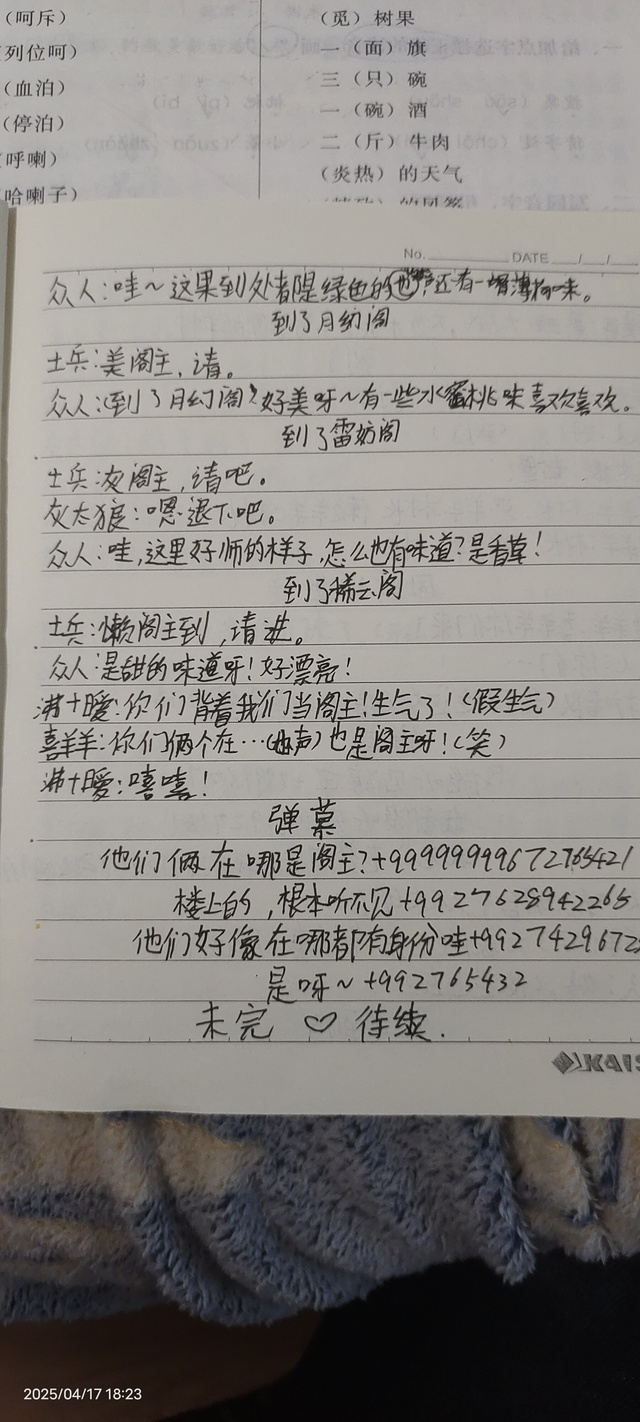 （呵斥）
列位呵）
（血泊）
（停泊）
呼喇）
哈喇子）
（觅）树果
一（面）旗
三（只）碗
一（碗）酒
二（斤）牛肉
（炎热）的天气
No. DATE / /
众人:哇~这果到处都是绿色的 还有一 薄荷味。
到了月幻阁
士兵:美阁主,请。
众人:(到了月幻阁)好美呀~有一些水蜜桃味喜欢喜欢。
到了雷妨阁
士兵:灰阁主,请吧。
灰太狼:嗯.退下吧。
众人:哇,这里好帅的样子,怎么也有味道?是香草!
到了稀云阁
士兵:懒阁主到,请进。
众人:是甜的味道呀!好漂亮!
沸+暖:你们背着我们当阁主!生气了!(假生气)
喜羊羊:你们俩个在…( 声)也是阁主呀!(笑)
沸+暖:嘻嘻!
弹幕
他们俩在哪是阁主?+99999999672765421
楼上的,根本听不见+992762894226
他们好像在哪都有身份哇+9927429672
是呀~+992765432
未完♡待续.
KAIS
2025/04/17 18:23